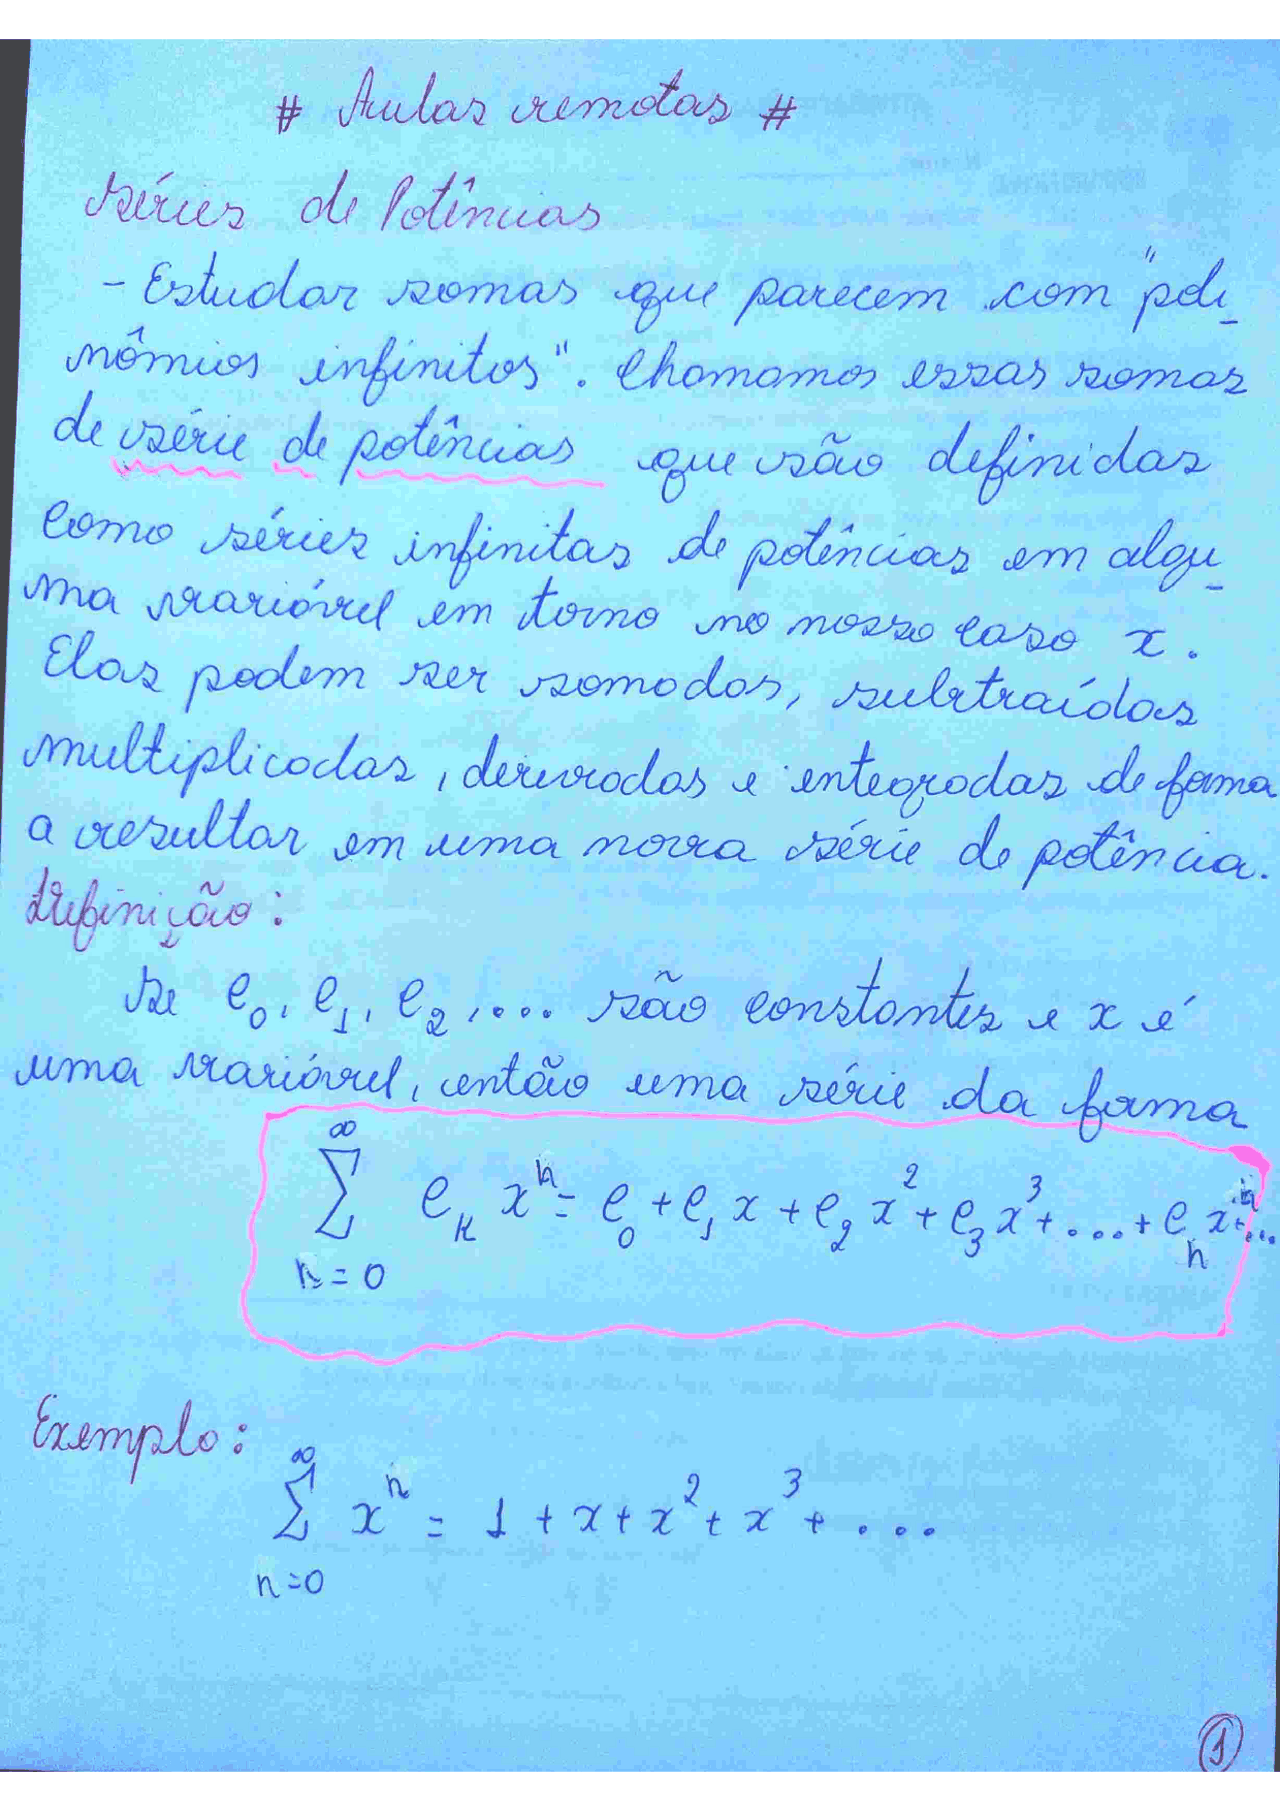 # Aulas remotas #
Séries de Potências
- Estudar somas que parecem com "poli_
nômios infinitos". Chamamos essas somas
de série de potências que são definidas
como séries infinitas de potências em algu_
ma variável em torno no nosso caso x.
Elas podem ser somadas, subtraídas
multiplicadas, derivadas e integradas de forma
a resultar em uma nova série de potência.
Definição:
Se C₀, C₁, C₂, ... são constantes e x é
uma variável, então uma série da forma
∞
∑ Cₙ xⁿ = C₀ + C₁ x + C₂ x² + C₃ x³ + ... + Cₙ xⁿ + ...
n = 0
Exemplo:
∞
∑ xⁿ = 1 + x + x² + x³ + ...
n = 0
1